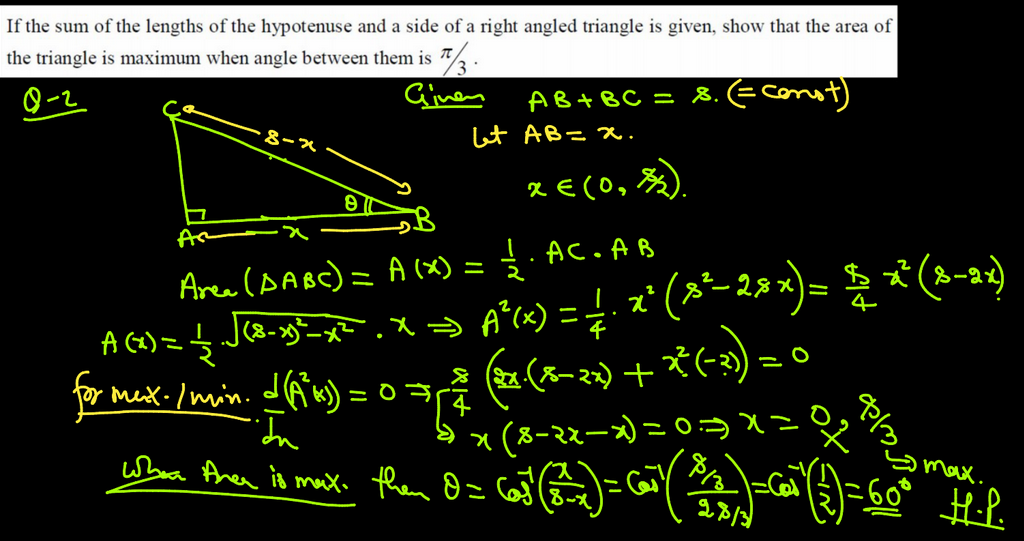 If the sum of the lengths of the hypotenuse and a side of a right angled triangle is given, show that the area of
the triangle is maximum when angle between them is π/3.
Q-2
Given AB+BC = s. (= const)
Let AB = x.
x ∈ (0, s/2).
C
s-x
θ
A
x
B
Area (ΔABC) = A(x) = 1/2 . AC . AB
A(x) = 1/2 . √((s-x)²-x²) . x ⇒ A²(x) = 1/4 . x² (s²-2sx) = s/4 x² (s-2x)
for max. / min. d/dx (A²(x)) = 0 ⇒ s/4 (2x.(s-2x) + x²(-2)) = 0
x (s-2x-x) = 0 ⇒ x = 0, s/3
↳ max.
When Area is max. then θ = Cos⁻¹(x/(s-x)) = Cos⁻¹((s/3)/(2s/3)) = Cos⁻¹(1/2) = 60° H.P.